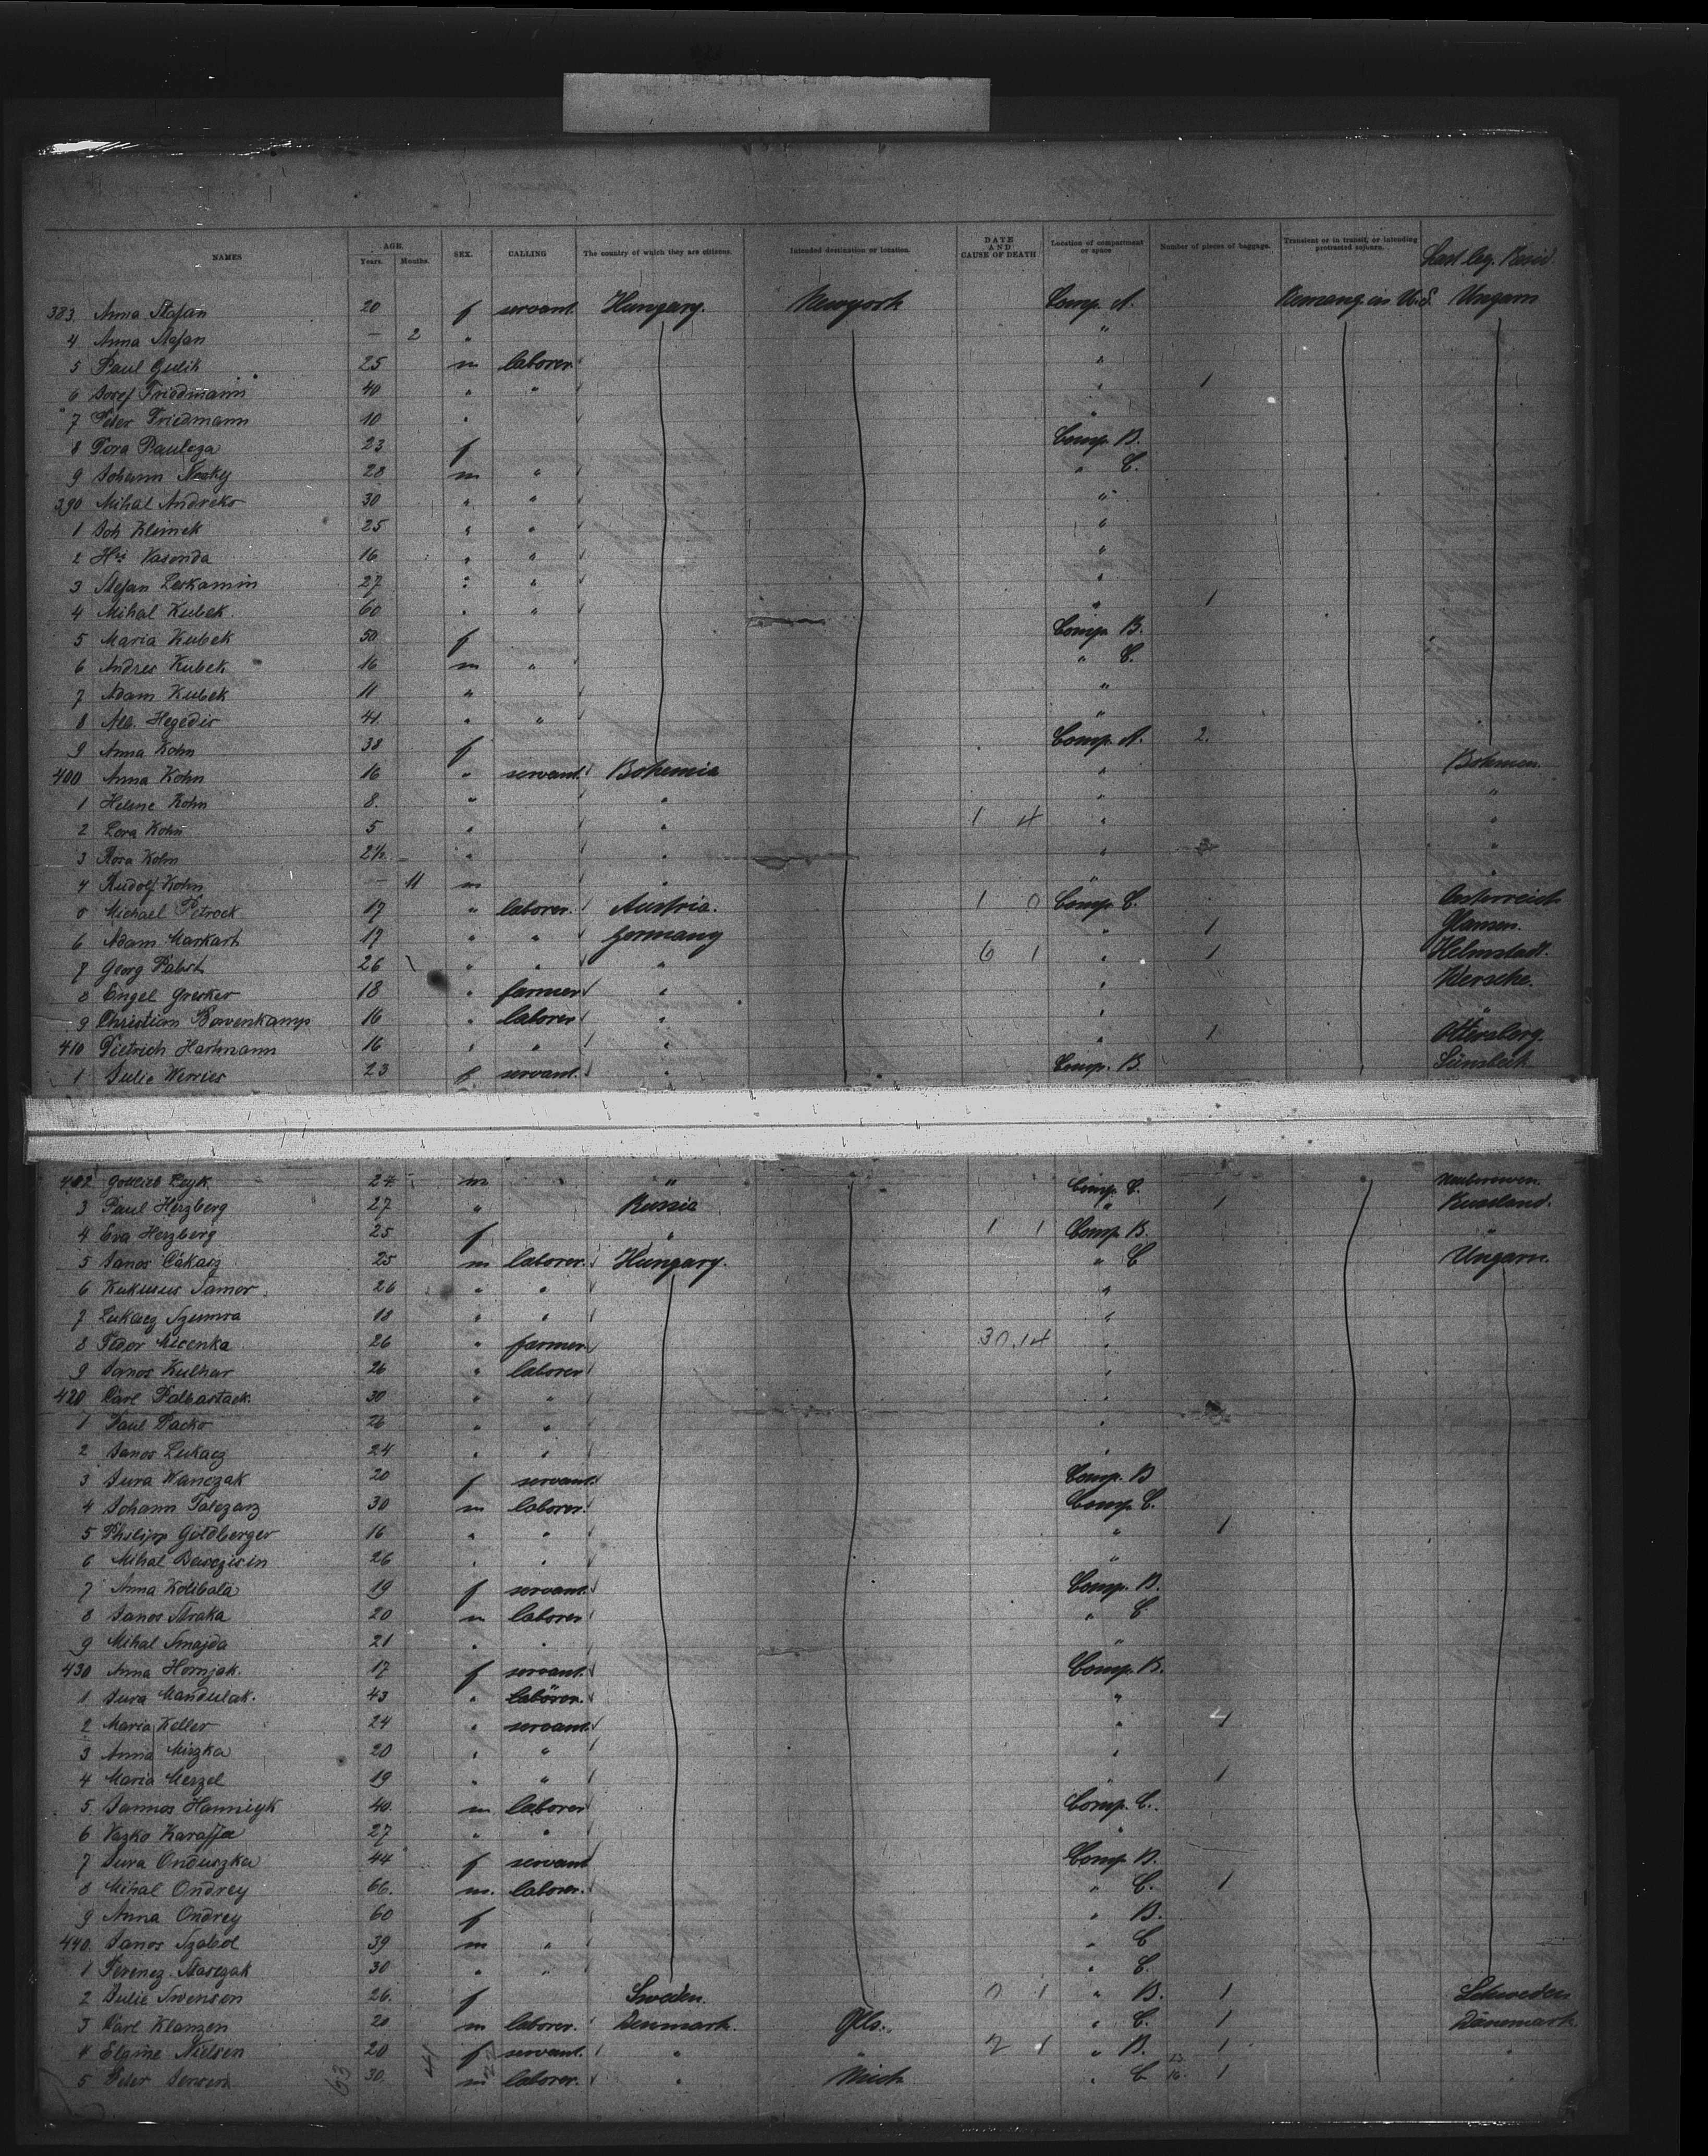 NAMES AGE. Years. Months. SEX. CALLING The country of which they are citizens. Intended destination or location. DATE AND CAUSE OF DEATH Location of compartment or space Number of pieces of baggage. Transient or in transit, or intending protracted sojourn. Last leg. Resid.
383 Anna Stefan 20 f servant. Hungary. Newyork Comp. A. Ungarn
4 Anna Stefan — 2 " "
5 Paul Gulik 25 m laborer "
6 Josef Friedmann 40 " " " 1
7 Peter Friedmann 10 " "
8 Dora Pauleza 23 f Comp. B.
9 Johann 28 m " " C.
390 Mihal Andreko 30 " " "
1 Joh Klimek 25 " " "
2 Vasonda 16 " " "
3 Stefan Leskamin 27 " " "
4 Mihal Kubek. 60 " " " 1
5 Maria Kubek 50 f Comp. B.
6 Andres Kubek 16 m " " C.
7 Adam Kubek 11 " "
8 Alb. Hegedis 41 " " "
9 Anna Kohn 38 f Comp. A. 2.
400 Anna Kohn 16 " servant. Bohemia " Bohmen.
1 Helene Kohn 8. " " " "
2 Lora Kohn 5 " " 1 4 " "
3 Rosa Kohn 2½ " " " "
4 Rudolf Kohn — 11 m " " "
5 Michael Petrock 17 " laborer. Austria. 1 0 Comp. C. Oesterreich
6 Adam Markart 17 " " Germany " 1
7 Georg Pabst 26 " " " 6 1 " 1 Helmstadt.
8 Engel Gresker 18 " farmer " " Wersche.
9 Christian 16 " laborer " " "
410 Dietrich Hartmann 16 " " " " 1 Ottersberg.
1 Julie Werries 23 f servant. " Comp. B.
412 Gottlieb Leyk 24 m " " Comp. C.
3 Paul Herzberg 27 " Russia " 1 Russland.
4 Eva Herzberg 25 f " 1 1 Comp. B. "
5 Janos Cakasz 25 m laborer. Hungary. " C Ungarn.
6 Kukurus Samor. 26 " " "
7 Lukacz Szumra 18 " " "
8 Fedor Micenka 26 " farmer 30.14 "
9 Janos Kulhar 26 " laborer "
420 Carl Palbastack. 30 " " "
1 Paul Packo 26 " " "
2 Janos Lukacz 24 " " "
3 Jura Wanczak 20 f servant. Comp. B
4 Johann Talczarz 30 m laborer. Comp. C.
5 Philipp Goldberger 16 " " " 1
6 Mihal 26 " " "
7 Anna Kolibala 19 f servant. Comp. B.
8 Janos Straka 20 m laborer " C.
9 Mihal Smajda 21 " " "
430 Anna Hornjak. 17 f servant. Comp. B.
1 Jura Mandulak. 43 " laborer. "
2 Maria Keller 24 " servant. "
3 Anna Miszka 20 " " "
4 Maria Meszel 19 " " " 1
5. Jannos 40. m laborer Comp. C.
6 Vazko Karaffa 27 " " "
7 Jura Onduszka 44 f servant Comp. B.
8 Mihal Ondrey 66. m. laborer. " C. 1
9 Anna Ondrey 60 f " B.
440. Janos Szabol 39 m " " C
1 Ferencz Starczak 30 " " " C.
2 Julie Swensen 26. f Sweden. 0 1 " B. 1 Schweden
3 Carl Klanzen 20 m laborer. Denmark. " C. 1 Dänemark
4 Nielsen 20 f servant. " " 2 1 " B. 1 "
5 Peter Jensen. 30. m laborer. " Mich " C 1 "
63 41